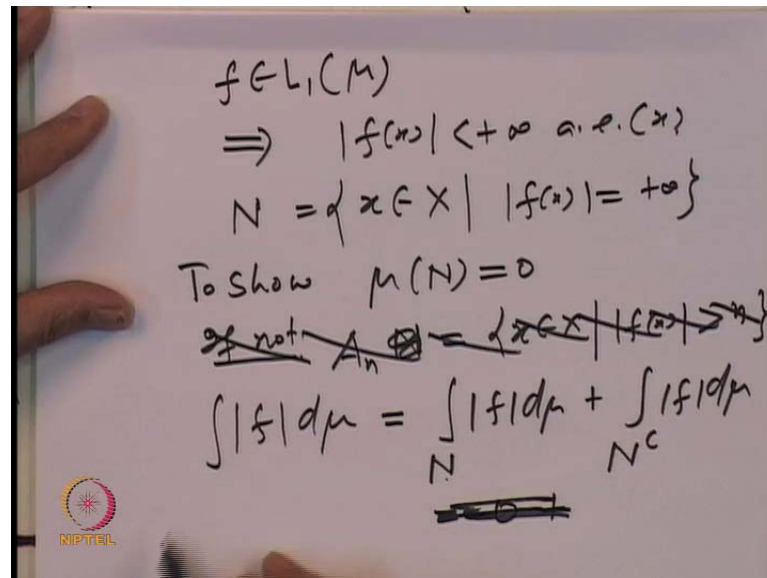 f ∈ L₁(μ)
⟹ |f(x)| < +∞ a.e.(x)
N = { x ∈ X | |f(x)| = +∞ }
To show μ(N) = 0
If not Aₙ = { x ∈ X | |f(x)| > n }
∫ |f| dμ = ∫_N |f| dμ + ∫_{N^c} |f| dμ
= 0
NPTEL